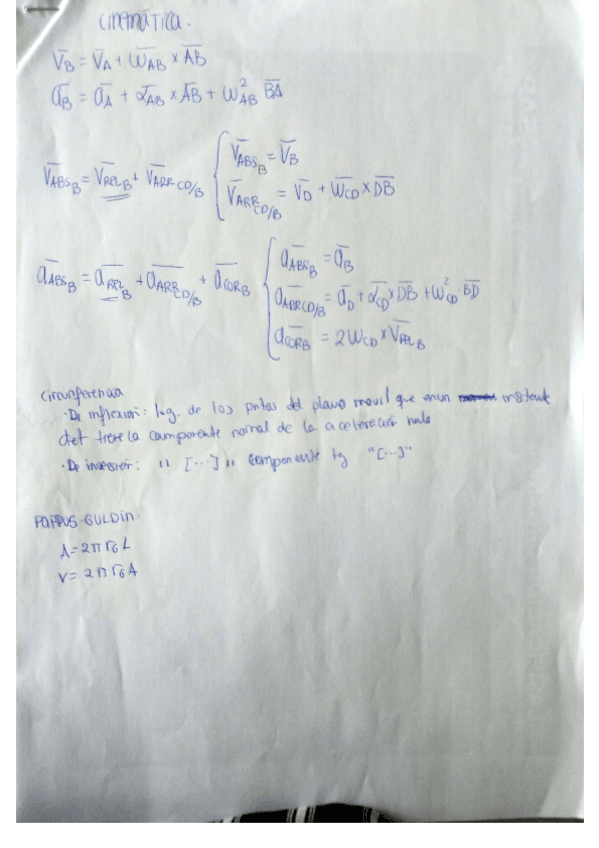 CINEMÁTICA.
V̅_B = V̅_A + ω̅_AB × A̅B̅
a̅_B = a̅_A + α̅_AB × A̅B̅ + ω²_AB B̅A̅
V̅_ABS_B = V̅_REL_B + V̅_ARR CD/B { V̅_ABS_B = V̅_B
V̅_ARR_CD/B = V̅_D + ω̅_CD × D̅B̅
a̅_ABS_B = a̅_REL_B + a̅_ARR_CD/B + a̅_COR_B { a̅_ABS_B = a̅_B
a̅_ARR CD/B = a̅_D + α̅_CD × D̅B̅ + ω²_CD · B̅D̅
a̅_COR_B = 2ω_CD × V̅_REL_B
Circunferencia
· De inflexión: lug. de los pntos del plano movil que en un instante
det tiene la componente normal de la aceleración nula
· De inversión: " [...] " componente tg "[...]"
PAPPUS-GULDIN:
A = 2π r_G L
V = 2π r_G A